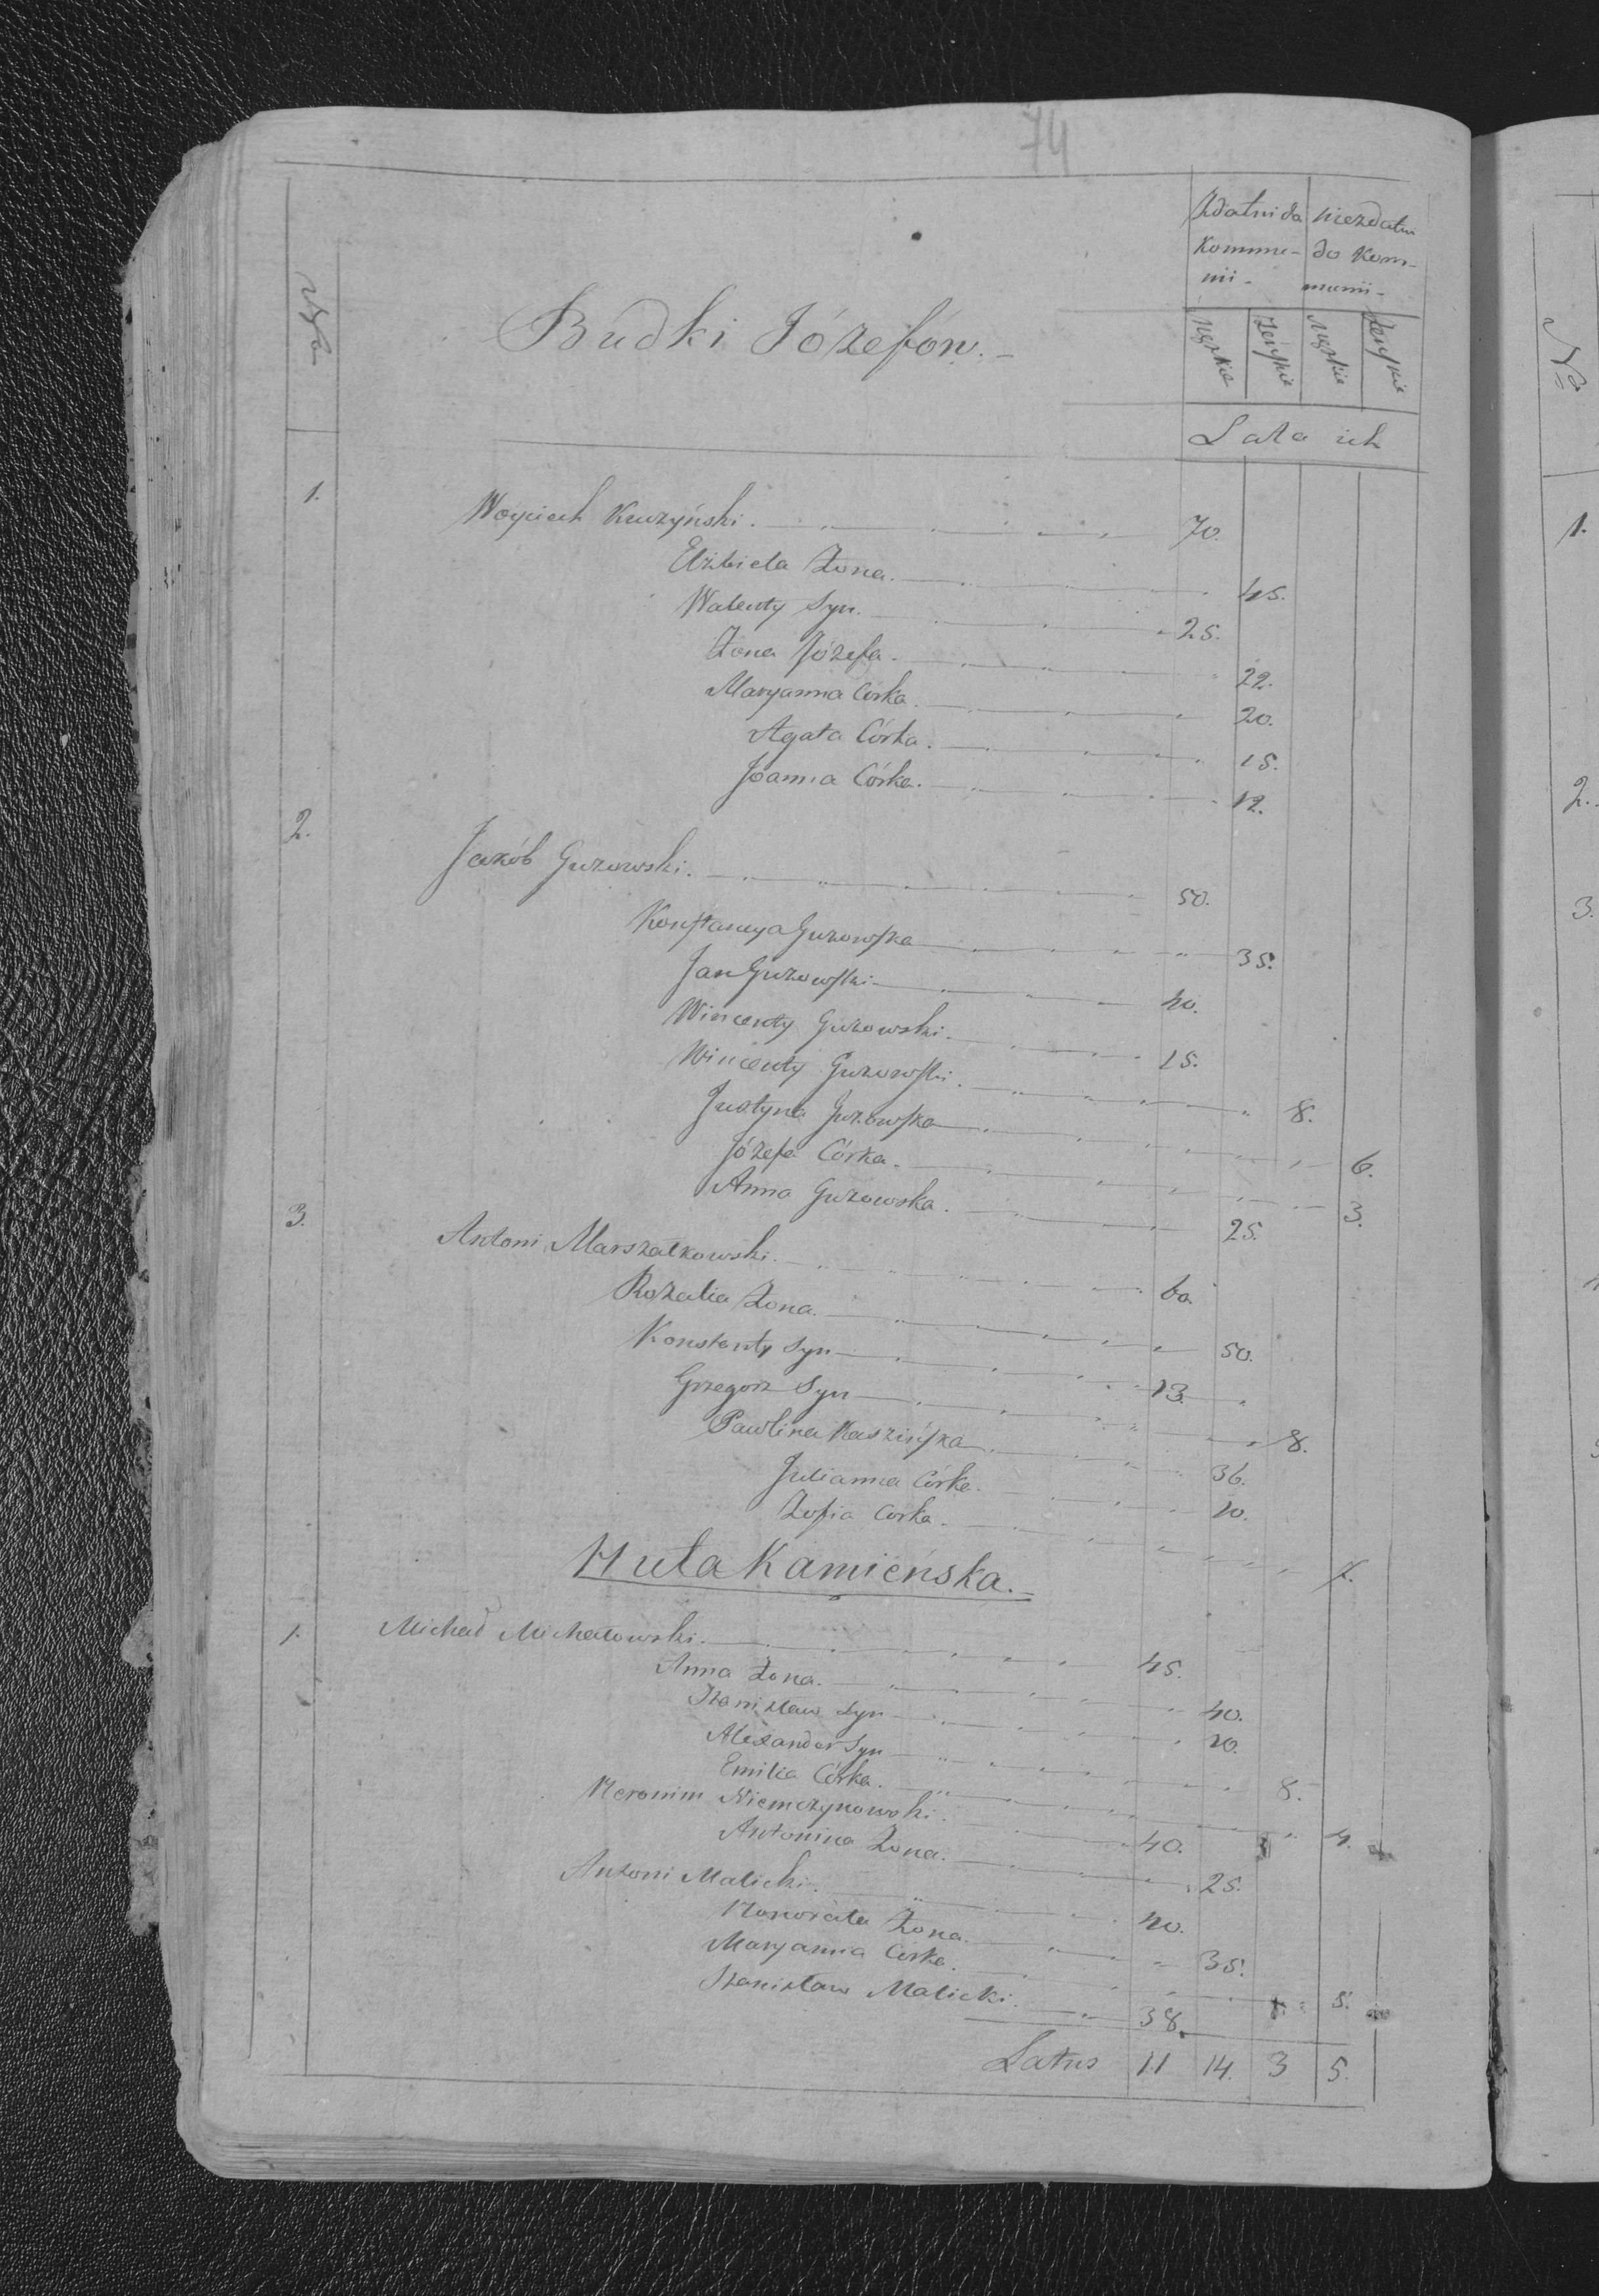 74
Zdatni do Kommunii - niezdatni do Kommunii -
Nro
Budki Józefów. -
Męzkie Żeńskie Męzkie Żeńskie
Lata ich
1. Woyciech Kuczyński. 70.
Elżbieta Żona. 45.
Walenty Syn. 25.
Żona Józefa. 22.
Maryanna Córka. 20.
Agata Córka. 15.
Joanna Córka. 12.
2. Jakób Guzowski. 50.
Konstancya Guzowska 35.
Jan Guzowski 40.
Wincenty Guzowski. 15.
Wincenty Guzowski. 8.
Justyna Guzowska 6.
Józefa Córka. 3.
Anna Guzowska. 25.
3. Antoni Marszałkowski. 60.
Rozalia Żona. 50.
Konstanty Syn 13.
Grzegorz Syn 8.
Pawlina Kaszińska 36.
Julianna Córka. 10.
Zofia Corka.
Huta Kamieńska. -
1. Michał Michałowski. 45.
Anna Żona. 40.
Stanisław Syn 20.
Alexander Syn 8.
Emilia Córka. 4.
Heronim Niemczynowski. 40.
Antonina Żona. 25.
Antoni Malicki. 40.
Honorata Żona. 35.
Maryanna Córka. 5.
Stanisław Malicki. 38.
Latus 11 14. 3 5.
No
1.
2.
3.